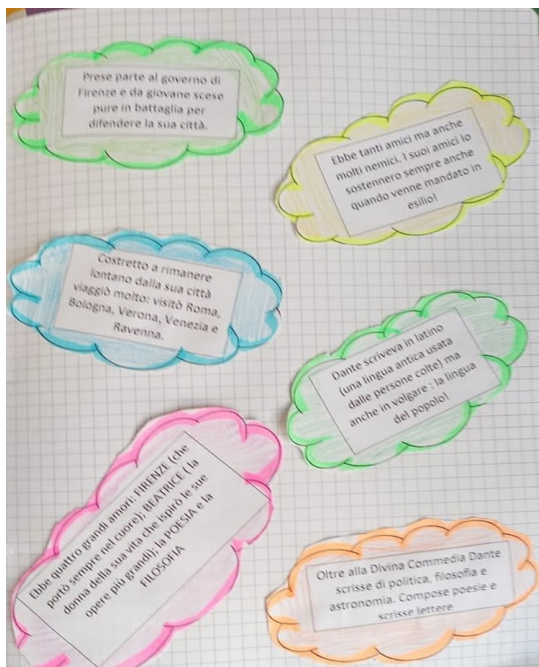 Prese parte al governo di
Firenze e da giovane scese
pure in battaglia per
difendere la sua città.
Ebbe tanti amici ma anche
molti nemici. I suoi amici lo
sostennero sempre anche
quando venne mandato in
esilio!
Costretto a rimanere
lontano dalla sua città
viaggiò molto: visitò Roma,
Bologna, Verona, Venezia e
Ravenna.
Dante scriveva in latino
(una lingua antica usata
dalle persone colte) ma
anche in volgare : la lingua
del popolo!
Ebbe quattro grandi amori: FIRENZE (che
portò sempre nel cuore); BEATRICE ( la
donna della sua vita che ispirò le sue
opere più grandi); la POESIA e la
FILOSOFIA
Oltre alla Divina Commedia Dante
scrisse di politica, filosofia e
astronomia. Compose poesie e
scrisse lettere